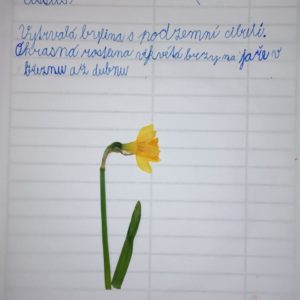 Vytrvalá bylina s podzemní cibulí.
Okrasná rostlina vykvétá brzy na jaře v
březnu až dubnu